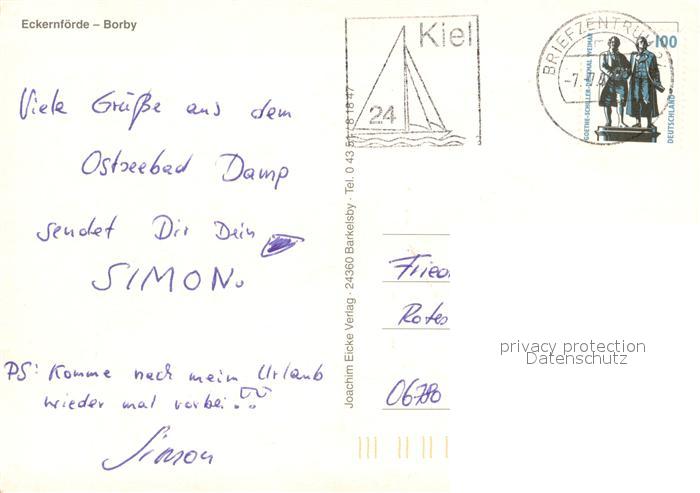 Eckernförde – Borby
Viele Grüße aus dem
Ostseebad Damp
sendet Dir Dein
SIMON.
PS: Komme nach mein Urlaub
wieder mal vorbei.
Simon
Joachim Eicke Verlag · 24360 Barkelsby · Tel. 0 43 51 / 8 18 47
Kiel
24
BRIEFZENTRUM
100
GOETHE-SCHILLER-DENKMAL WEIMAR
DEUTSCHLAND
Rotes
privacy protection
Datenschutz